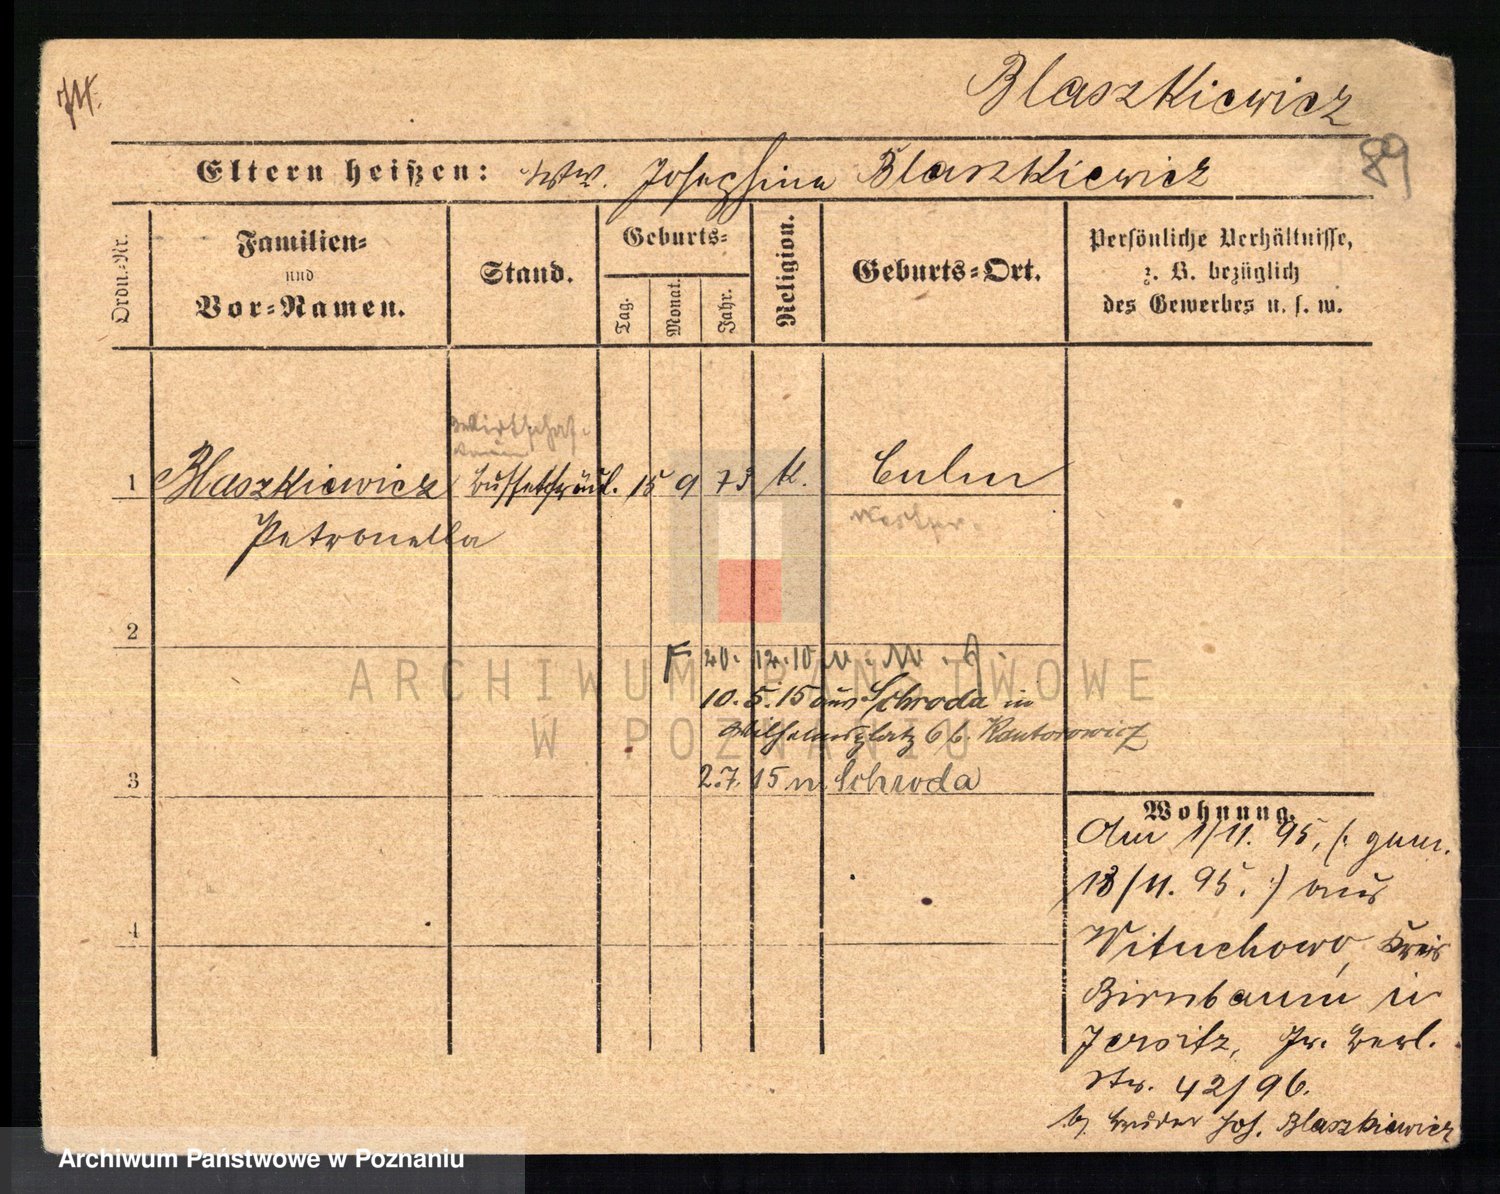 Blaszkiewicz
89
Eltern heißen: Ww. Josephina Blaszkiewicz
Ordn.-Nr.
Familien-
und
Vor-Namen.
Stand.
Geburts-
Tag.
Monat.
Jahr.
Religion.
Geburts-Ort.
Persönliche Verhältnisse,
z. B. bezüglich
des Gewerbes u. s. w.
1 Blaszkiewicz Buffetfräul. 15 9 73 k. Culm
Petronella Westpr.
2
F 20. 12. 10
10. 5. 15 aus Schroda in
Wilhelmsplatz 6 b. Kantorowicz
2. 7. 15 n Schroda
3
4
Wohnung.
Am 1/11. 95. (: gem.
18/11. 95. :) aus
Wituchowo, Kreis
Birnbaum in
Jersitz, Gr. Berl.
Str. 42/96.
b. Bruder Joh. Blaszkiewicz
ARCHIWUM PAŃSTWOWE
W POZNANIU
Archiwum Państwowe w Poznaniu